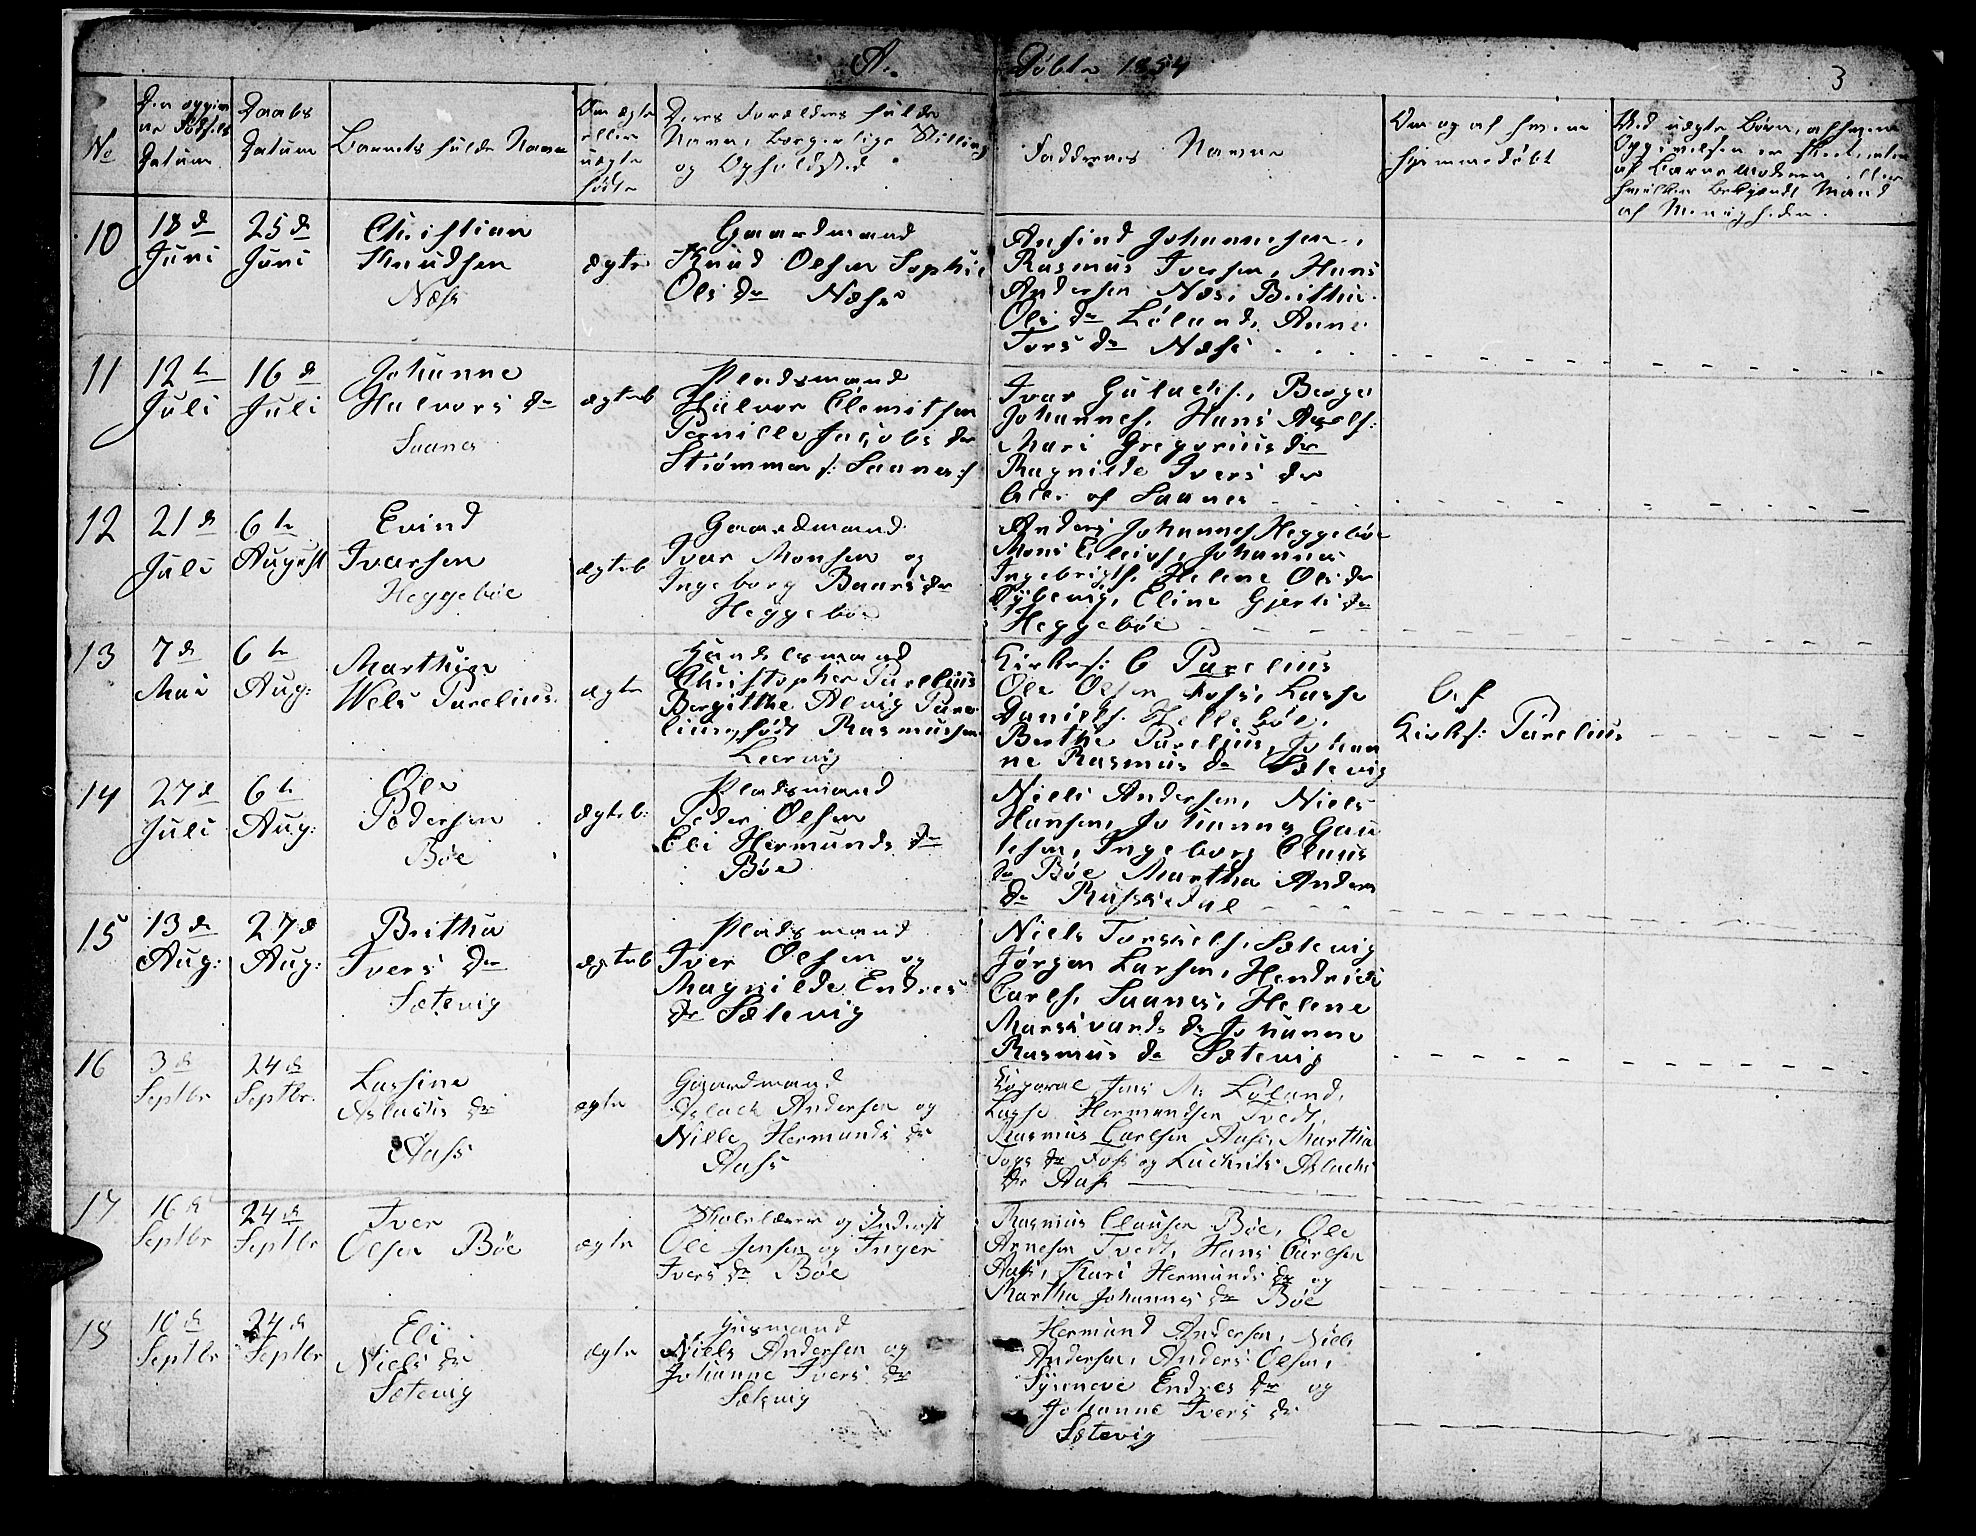 A. Døbte 1854
3
No
Den opgivne Fødsels Datum
Daabs Datum
Barnets fulde Navn
Om ægte eller uægte fødte
Deres Forældres fulde Navn, borgerlige Stilling og Opholdsted
Faddernes Navne
Om og af hvem hjemmedøbt
Ved uægte Børn, af hvem Opgivelsen er skeet, enten af Barnemoderen eller hvilken bekjendt Mand af Menigheden.
10
18 d
Juni
25 d
Juni
Christian
Knudsen
Næss
ægte
Gaardmand
Knud Olsen Sophie
Ols dr Næsse
Ansind Johannesen,
Rasmus Iversen, Hans
Andersen Næs, Britha
Ols dr Løland, Anne
Tors dr Næss
11
12 te
Juli
16 d
Juli
Johanne
Halvors dr
Saanes
ægteb
Pladsmand
Halvor Clemitsen
Pernille Jacobs dr
Strømmen /: Saanes :/
Ivar Gulachs., Berge
Johannes. Hans
Mari Gregorius dr
Ragnilde Ivers dr
alle af Saanes
12
21 d
Juli
6 te
August
Evind
Ivarsen
Heggebøe
ægteb
Gaardmand
Ivar Monsen og
Ingeborg Baars dr
Heggebøe
Anders Johannes Heggebøe
Mons Eleivs, Johannes
Ingebrigts. Helene Ols dr
Eline Gjerts dr
Heggebøe
13
7 d
Mai
6 te
Aug:
Marthine
Wels Parelius
ægte
Handelsmand
Christopher Parelius
Bergitthe Alvig Pare-
lius, født Rasmussen
Leervig
Kirks: C Parelius
Ole Olsen Foss, Lasse
Daniels.
Berthe Parelius, Johan
ne Rasmus dr Sætevig
Af
Kirks: Parelius
14
27 d
Juli
6 te
Aug:
Ole
Pedersen
Bøe
ægteb:
Pladsmand
Peder Olsen
Eli Hermunds dr
Bøe
Niels Andersen, Niels
Hansen, Johannes Gau
tesen, Ingeborg Claus
dr Bøe Martha Anders
dr Russedal
15
13 d
Aug:
27 d
Aug:
Britha
Ivers dr
Sætevig
ægteb
Pladsmand
Iver Olsen og
Magnilde Endres
dr Sætevig
Niels Torskels, Sætevig
Jørgen Larsen, Hendrick
Carls, Saanes, Helene
dr Johanne
Rasmus dr Sætevig
16
3 d
Septbr
24 d
Septbr.
Lassine
Aslachs dr
Aass
ægte
Gaardmand
Aslach Andersen og
Nille Hermunds dr
Aass
Jens A: Løland,
Lasse Hermundsen Tvedt,
Rasmus Carlsen Aase, Martha
dr Foss og Aslachs
dr Aase
17
16 d
Septbr
24 d
Septbr
Iver
Olsen Bøe
ægte
Skolelærer og Inderst
Ole Jensen og Inger
Ivers dr Bøe
Rasmus Clausen Bøe, Ole
Arnesen Tvedt, Hans Carlsen
Aase, Kari Hermunds dr og
Martha Johannes dr Bøe
18
10 d
Septbr
24 d
Septbr
Eli
Niels dr
Sætevig
ægte
Husmand
Niels Andersen og
Johanne Ivers dr
Sætevig
Hermund Andersen, Niels
Andersen, Anders Olsen,
Synneve Endres dr og
Johanne Ivers dr
Sætevig